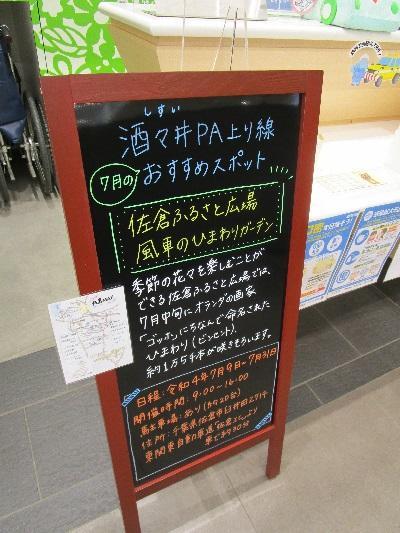 しすい
酒々井PA上り線
7月の
おすすめスポット
佐倉ふるさと広場
風車のひまわりガーデン
季節の花々を楽しむことが
できる佐倉ふるさと広場では、
7月中旬にオランダの画家
「ゴッホ」にちなんで命名された
ひまわり(ビンセント)、
約1万5千本が咲きほこります。
日程:令和4年7月9日~7月31日
開催時間:9:00~16:00
駐車場:あり(約120台)
住所:千葉県佐倉市臼井田2714
東関東自動車道 佐倉ICより
車で約30分